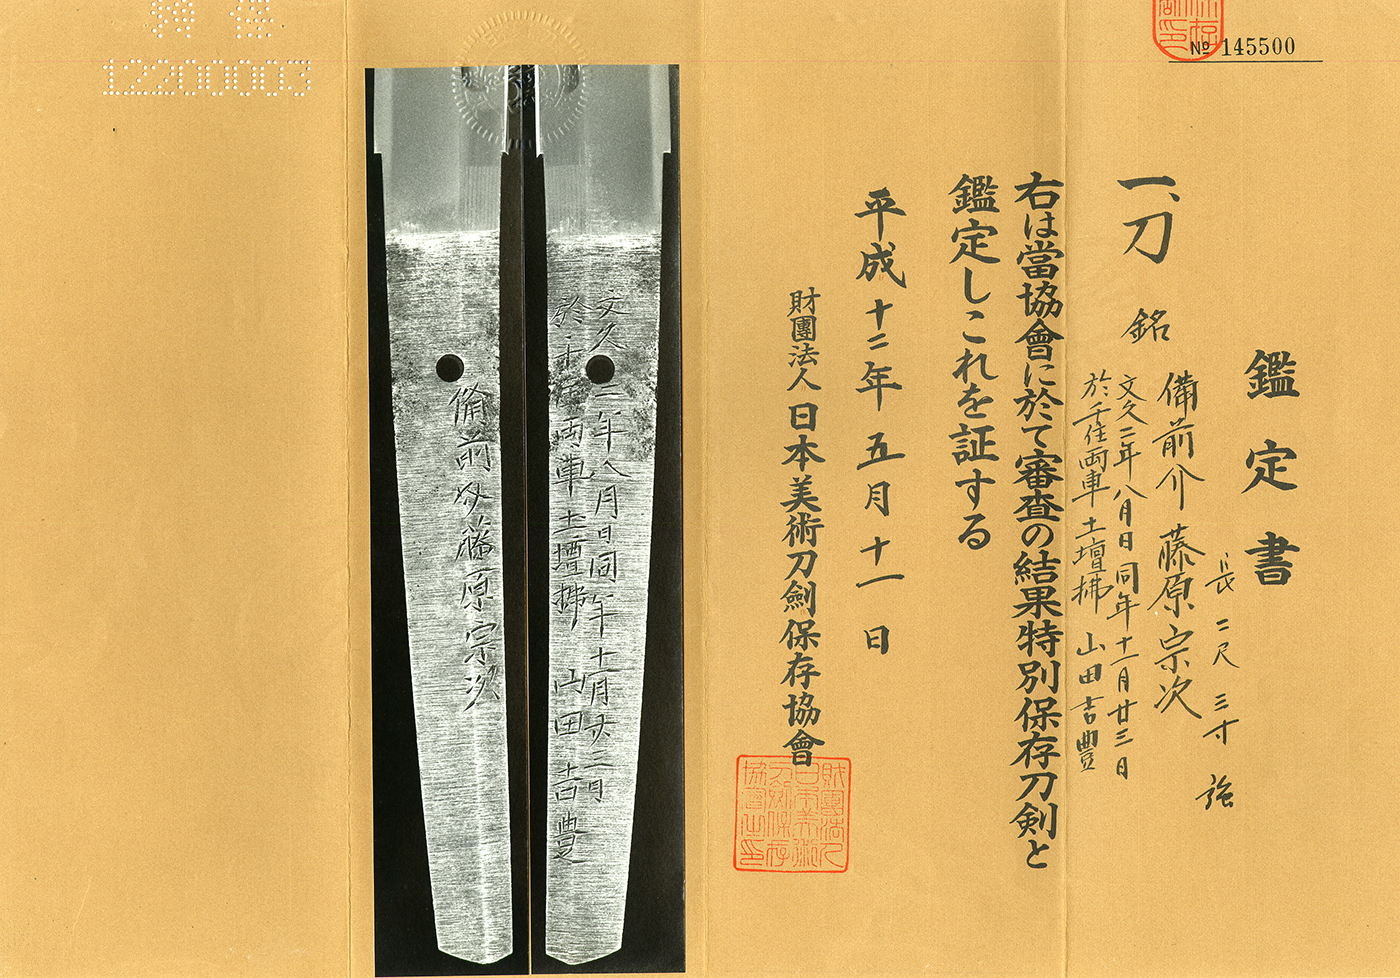 № 145500
鑑定書
一、刀 銘 備前介藤原宗次
長二尺三寸強
文久二年八月日同年十二月廿三日
於千住両車土壇拂 山田吉豊
右は當協會に於て審査の結果特別保存刀剣と
鑑定しこれを証する
平成十二年五月十一日
財團法人日本美術刀劍保存協會
財團法人日本美術刀劍保存協會之印
文久二年八月日同年十二月廿三日
於千住両車土壇拂 山田吉豊
備前介藤原宗次
12200003